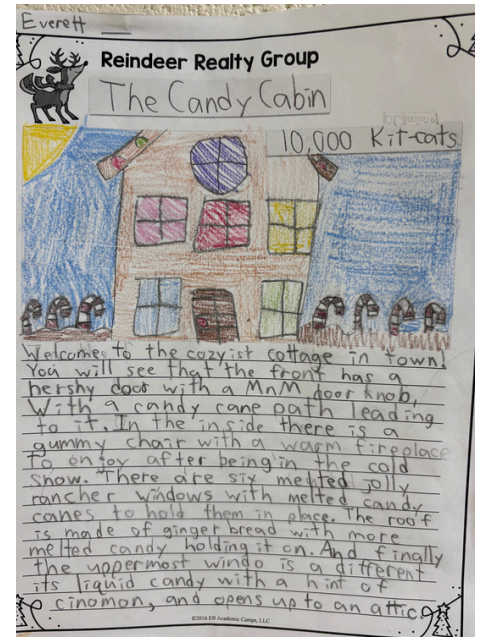 Everett
Reindeer Realty Group
The Candy Cabin
10,000 Kit-cats
Welcome to the cozyist cottage in town!
You will see that the front has a
hershy door with a MnM door knob,
With a candy cane path leading
to it. In the inside there is a
gummy chair with a warm fireplace
to enjoy after being in the cold
snow. There are six melted jolly
rancher windows with melted candy
canes to hold them in place. The roof
is made of ginger bread with more
melted candy holding it on. And finally
the uppermost windo is a different
its liquid candy with a hint of
cinomon, and opens up to an attic
©2016 EB Academic Camps, LLC